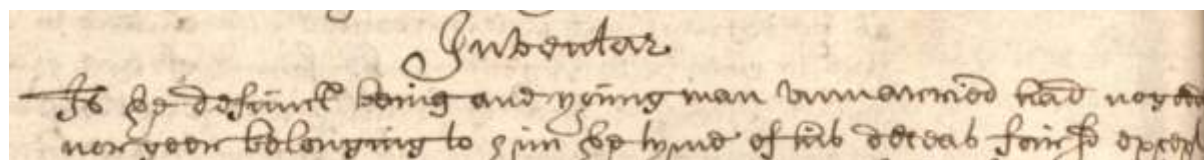 Inventar
Ite ye defunct being and young man unmarried had no goods
nor geer belonging to him ye tyme of his deceas foirsd except